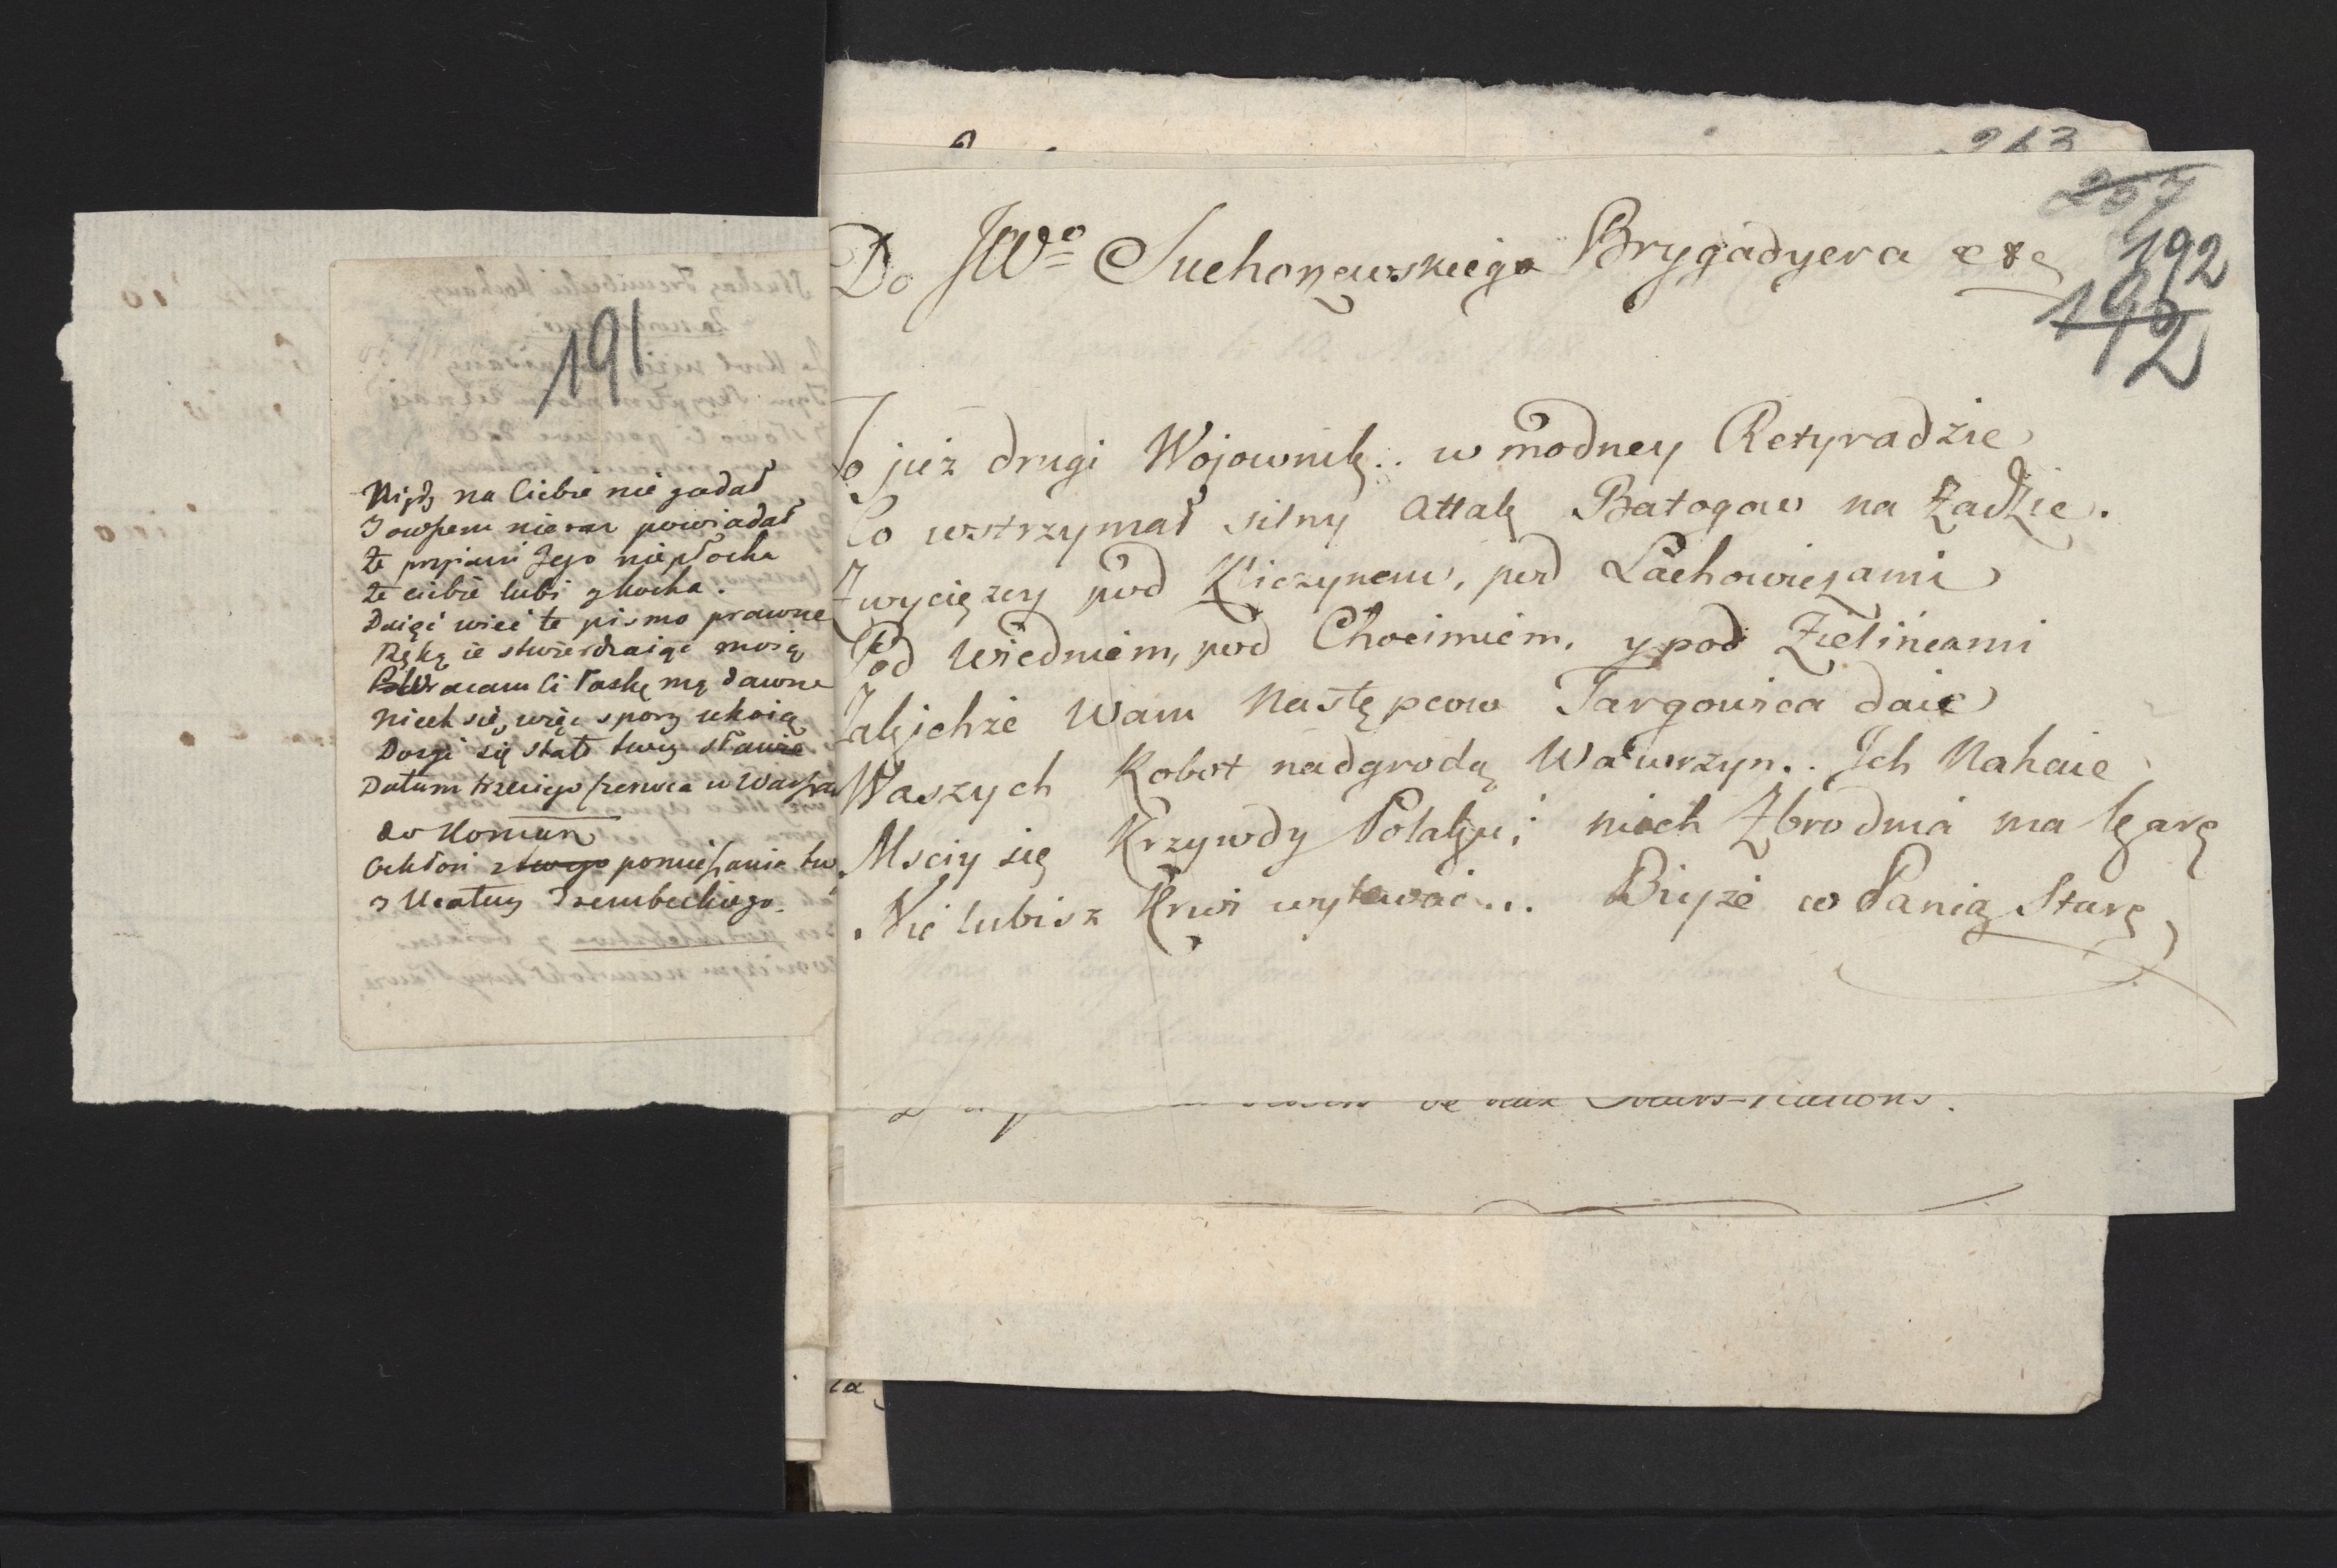 191
Nigdy na Ciebie nie gadał
I owszem nieraz powiadał
Że przyiaźń Jego niepłocha
Że ciebie lubi y kocha.
Daięć więc te pismo prawne
Ręką ie stwierdzaiąc moią
Wracam Ci łaskę mą dawne
Niech się więc spory ukoią
Dosyć się stało twey sławie
Datum trzeciego czerwca w Warsza
do Koniun
Ochłoń z twego pomieszania
y Ucałuy Trembeckiego.
263
267
192
192
Do JWo Suchorzewskiego Brygadyera etc
To już drugi Wojownik.. w modney Retyradzie
Co wstrzymał silny Attak Batogow na Zadzie.
Zwycięzcy pod Kliczynem, pod Lachowiczami
Pod Wiedniem, pod Chocimiem, y pod Zielińcami
Jakichże Wam Następcow Targowica daie
Waszych Robot nadgrodą Wawrzyn.. Ich Nahaie
Msciy się Krzywdy Polaku; niech Zbrodnia ma karę
Nie lubisz Krwi wylewać... Biyże w Panią Starę
de deux
la